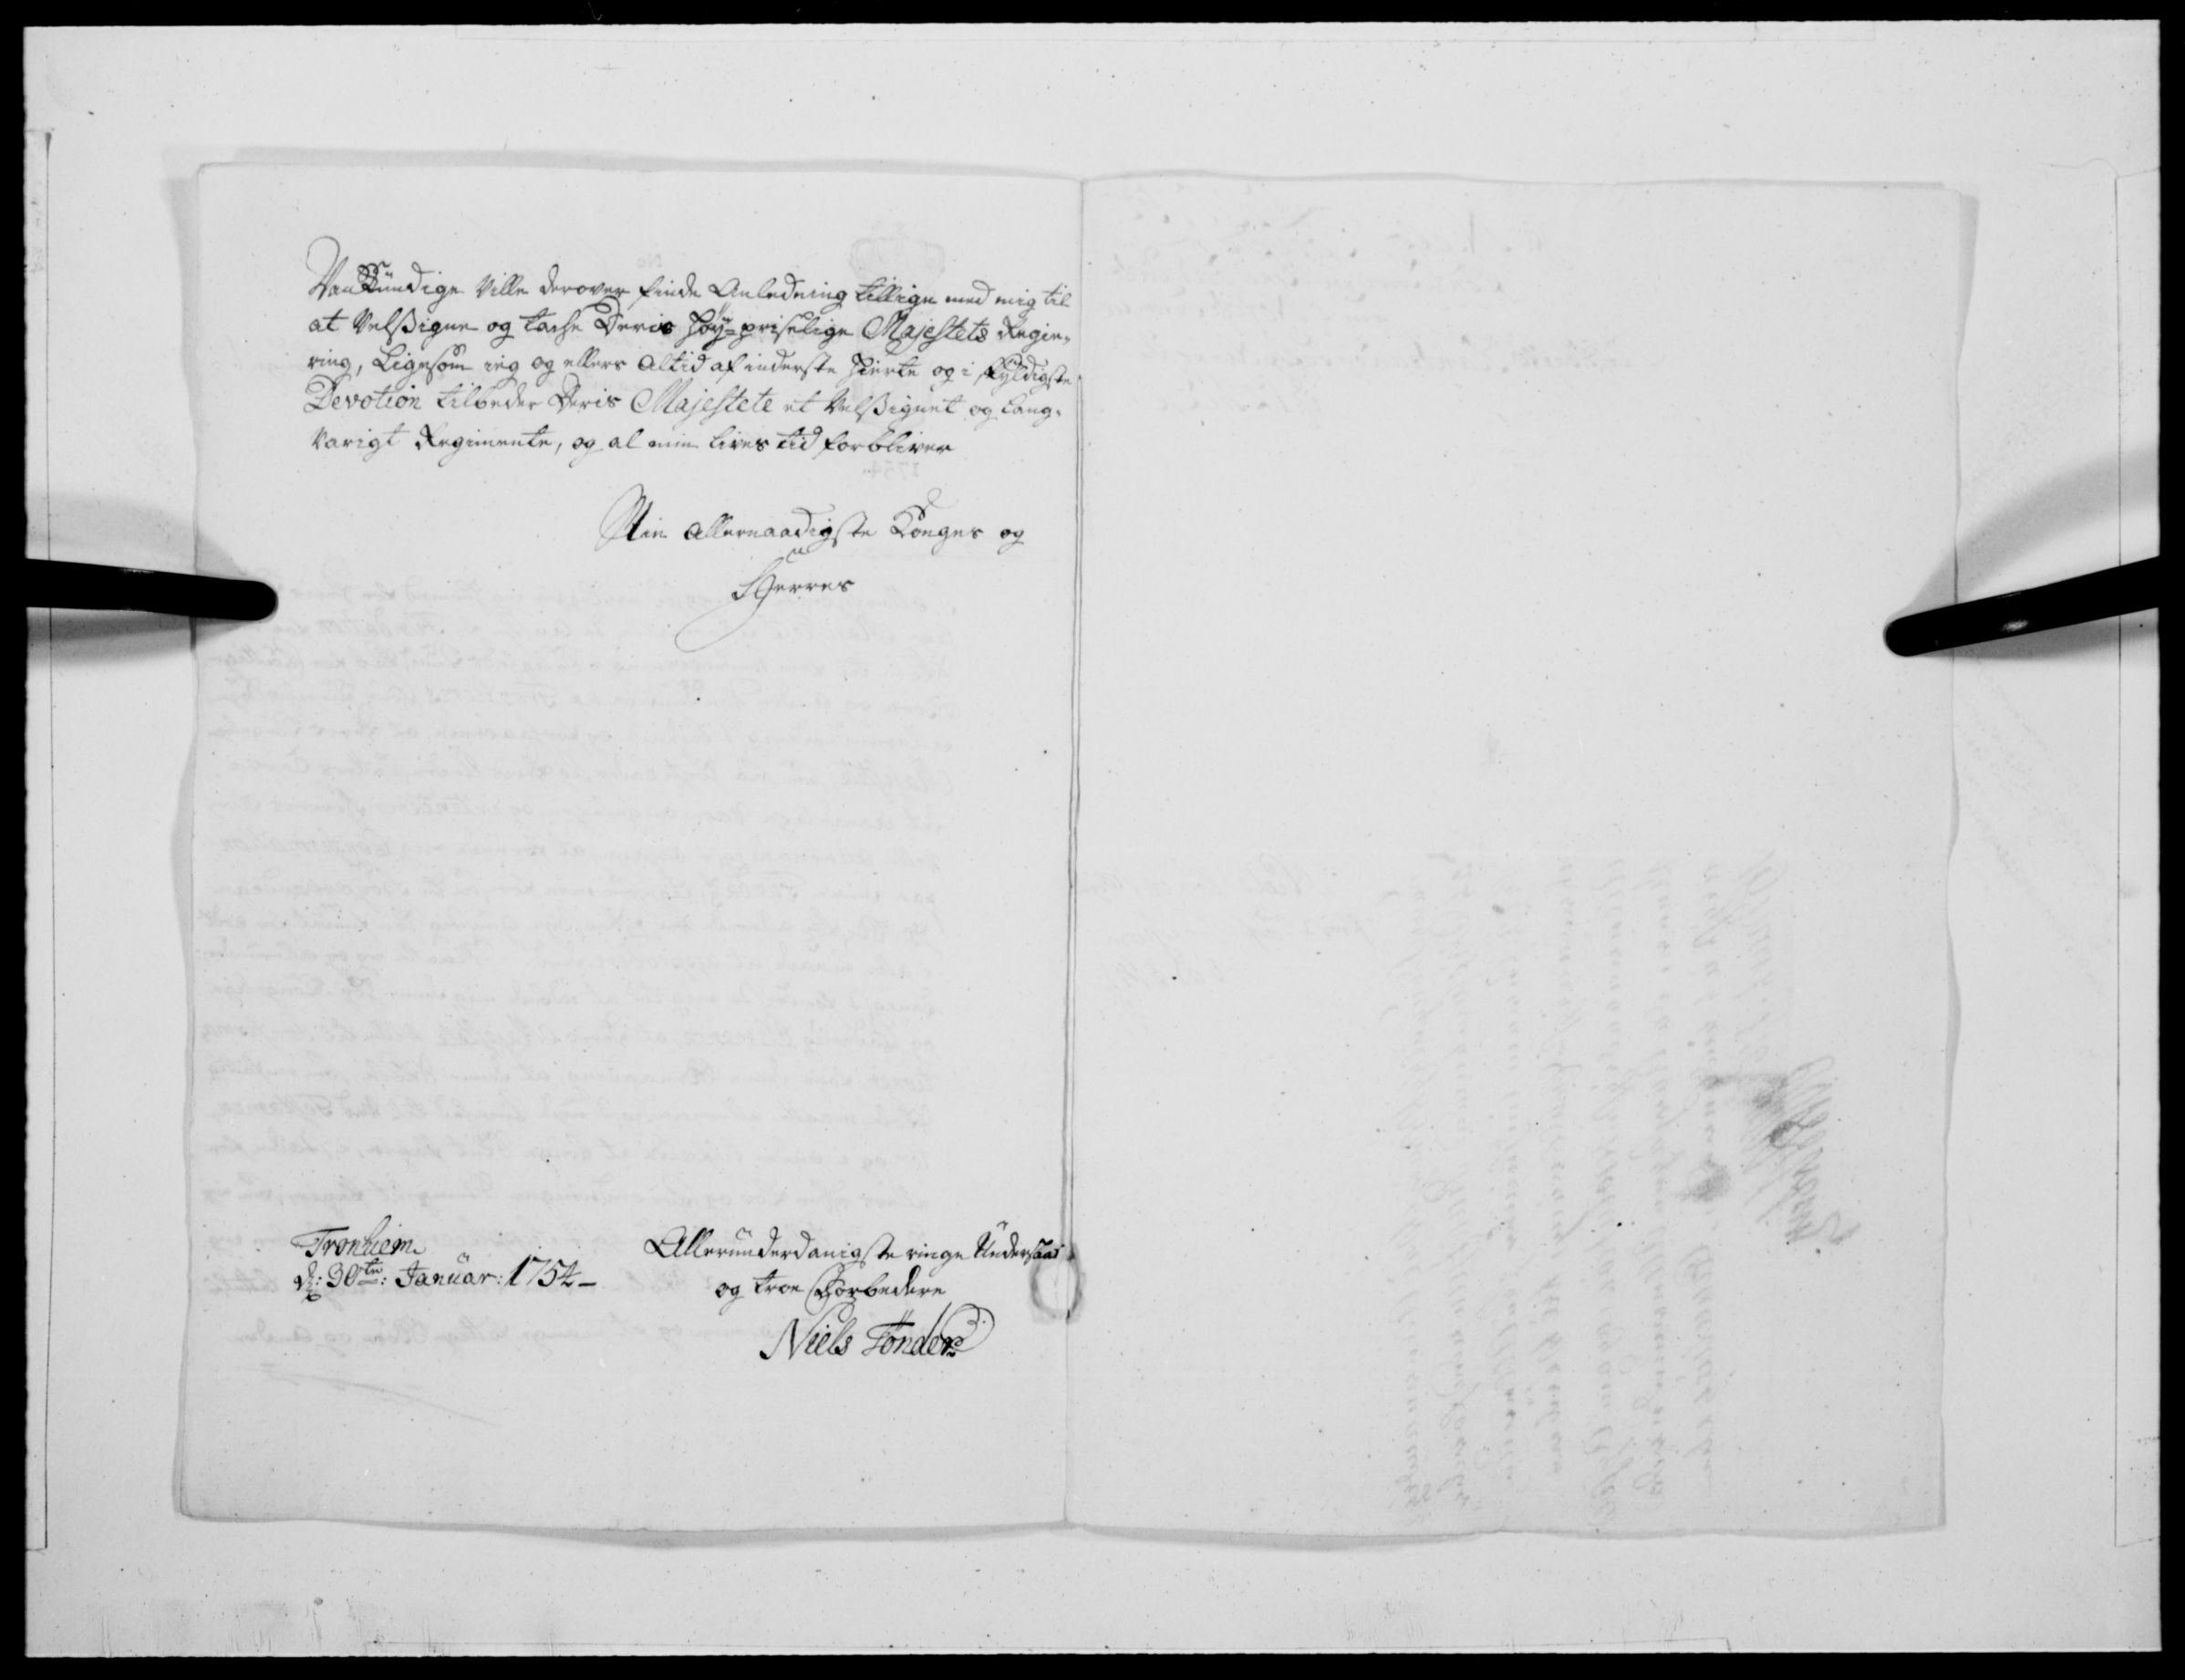 Vankündige Ville derover finde Anledning tillige med mig til
at Velsigne og takke Deris Høy-priselige Majestets Regie-
ring, Ligesom ieg og ellers altid af inderste Hierte og i skyldigste
Devotion tilbeder Deris Majestete et Velsignet og Lang-
varigt Regimente, og al min lives tid forbliver
Min Allernaadigste Konges og
Herres
Tronhiem
d: 30te: Januar: 1754 –
Alleründerdanigste ringe Ündersaat
og troe Forbedere
Niels Tönder